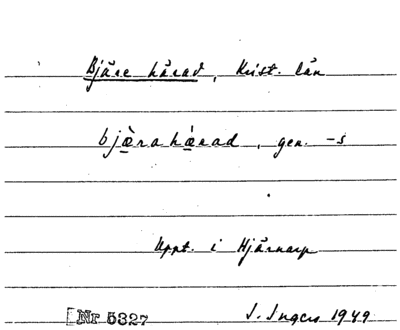 Bjäre härad, Krist. län
bjæ̀rahæ̀rad, gen. -s
Uppt. i Hjärnarp
[Nr 5327 I. Ingers 1949